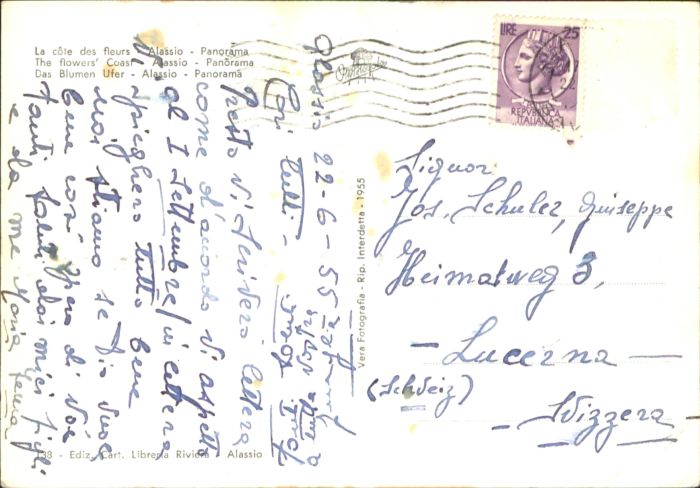 La côte des fleurs - Alassio - Panorama
The flowers' Coast - Alassio - Panorama
Das Blumen Ufer - Alassio - Panorama
LIRE 25
REPVBBLICA
ITALIANA
Alassio 22-6-55
Cari tutti -
Presto Vi scriverò lettera
come d'accordo Vi aspetto
al I Settembre / in lettera
Vi spiegherò tutto bene
Noi stiamo se Dio vuole
bene così spero di Voi
tanti saluti dai miei figli
e da me Maria
Vera Fotografia - Rip. Interdetta - 1955
Signor
Jos. Schuler, Giuseppe
Heimatweg 3,
- Lucerna -
(Schweiz)
- Svizzera -
138 - Ediz. Cart. Libreria Riviera - Alassio